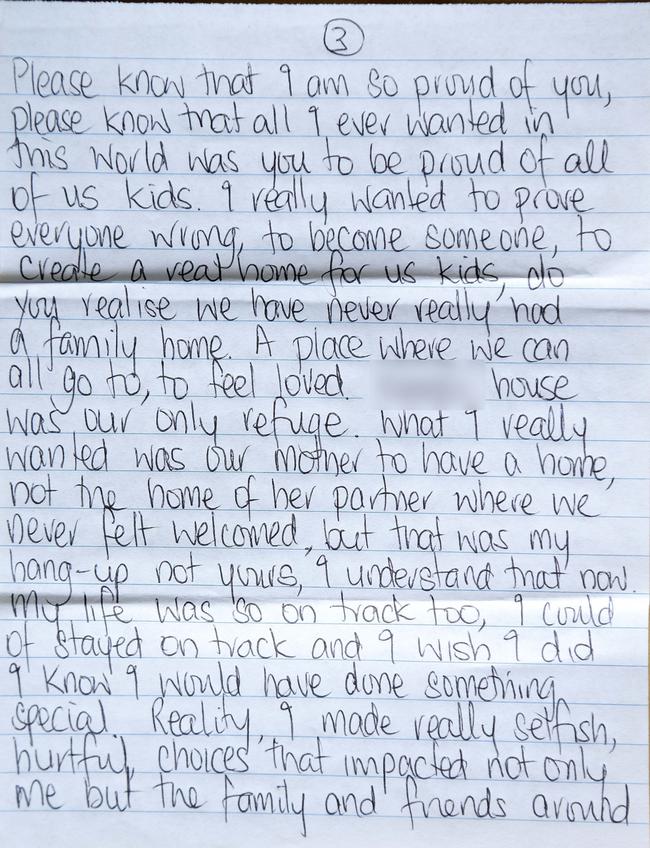 3
Please know that I am so proud of you,
please know that all I ever wanted in
this world was you to be proud of all
of us kids. I really wanted to prove
everyone wrong, to become someone, to
create a real home for us kids, do
you realise we have never really had
a family home. A place where we can
all go to, to feel loved. house
was our only refuge. What I really
wanted was our mother to have a home,
not the home of her partner where we
never felt welcomed, but that was my
hang-up not yours, I understand that now.
My life was so on track too, I could
of stayed on track and I wish I did
I know I would have done something
special. Reality, I made really selfish,
hurtful, choices that impacted not only
me but the family and friends around